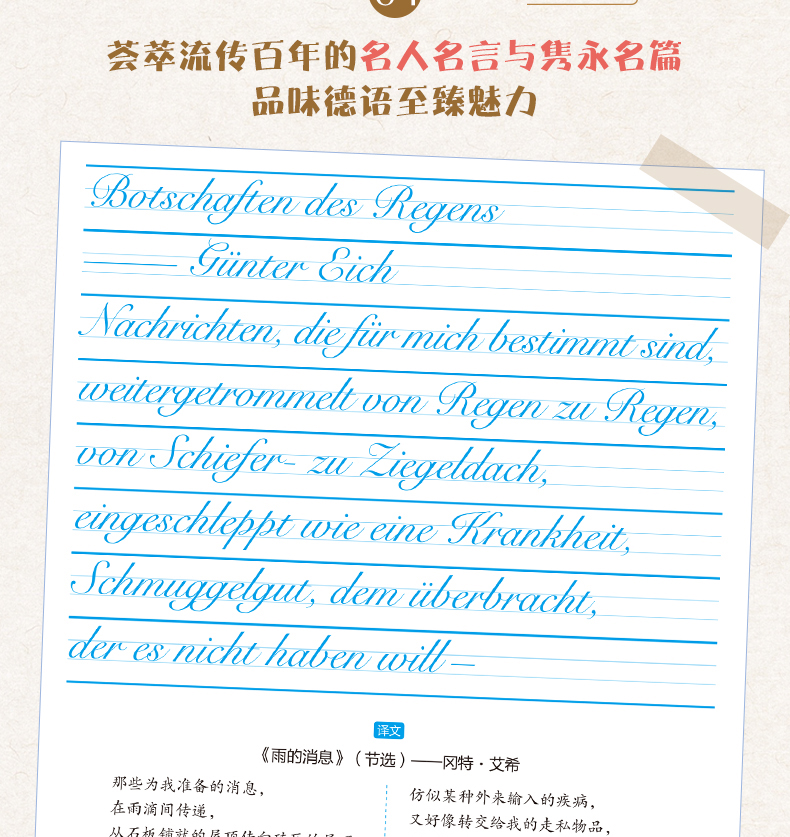 荟萃流传百年的名人名言与隽永名篇
品味德语至臻魅力
Botschaften des Regens
—— Günter Eich
Nachrichten, die für mich bestimmt sind,
weitergetrommelt von Regen zu Regen,
von Schiefer- zu Ziegeldach,
eingeschleppt wie eine Krankheit,
Schmuggelgut, dem überbracht,
der es nicht haben will —
译文
《雨的消息》（节选）——冈特·艾希
那些为我准备的消息，
在雨滴间传递，
仿似某种外来输入的疾病，
又好像转交给我的走私物品，